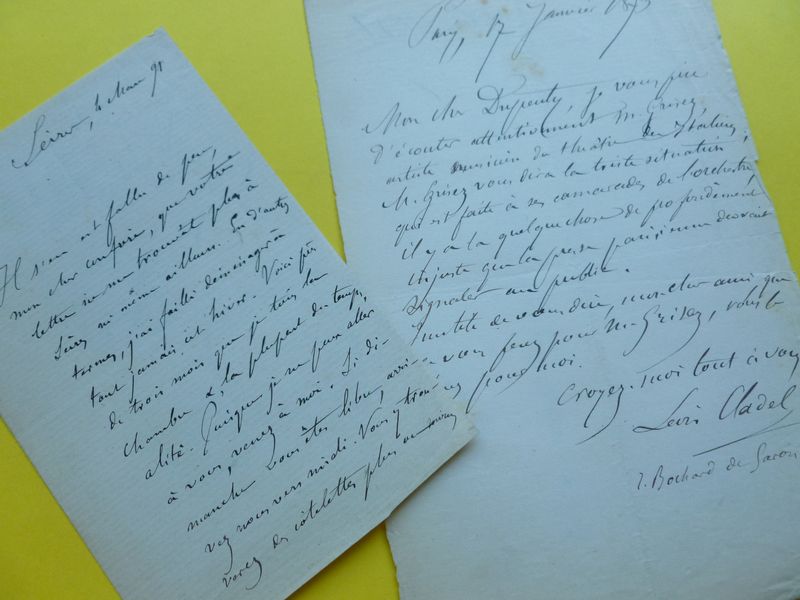 Sèvres, 4 Mars 91
Il s'en est fallu de peu,
mon cher confrère, que votre
lettre ne me trouvât plus à
Sèvres ni même ailleurs. En d'autres
termes, j'ai failli déménager à
tout jamais cet hiver. Voici près
de trois mois que je suis la
chambre &, la plupart du temps,
alité. Puisque je ne peux aller
à vous, venez à moi. Si di-
manche vous êtes libre, arri-
vez nous vers midi. Vous y trou-
verez des côtelettes plus ou moins
Paris, 17 Janvier
Mon cher Dupeuty, je vous prie
d'écouter attentivement M. Grisez,
artiste musicien du théâtre des Italiens,
M. Grisez vous dira la triste situation
qui est faite à ses camarades de l'orchestre
il y a là quelque chose de profondément
injuste que la presse parisienne devrait
signaler au public.
Inutile de vous dire, mon cher ami que
vous ferez pour M. Grisez, vous le
pour moi.
Croyez-moi tout à vous
Léon Cladel
7. Bochard de Saron